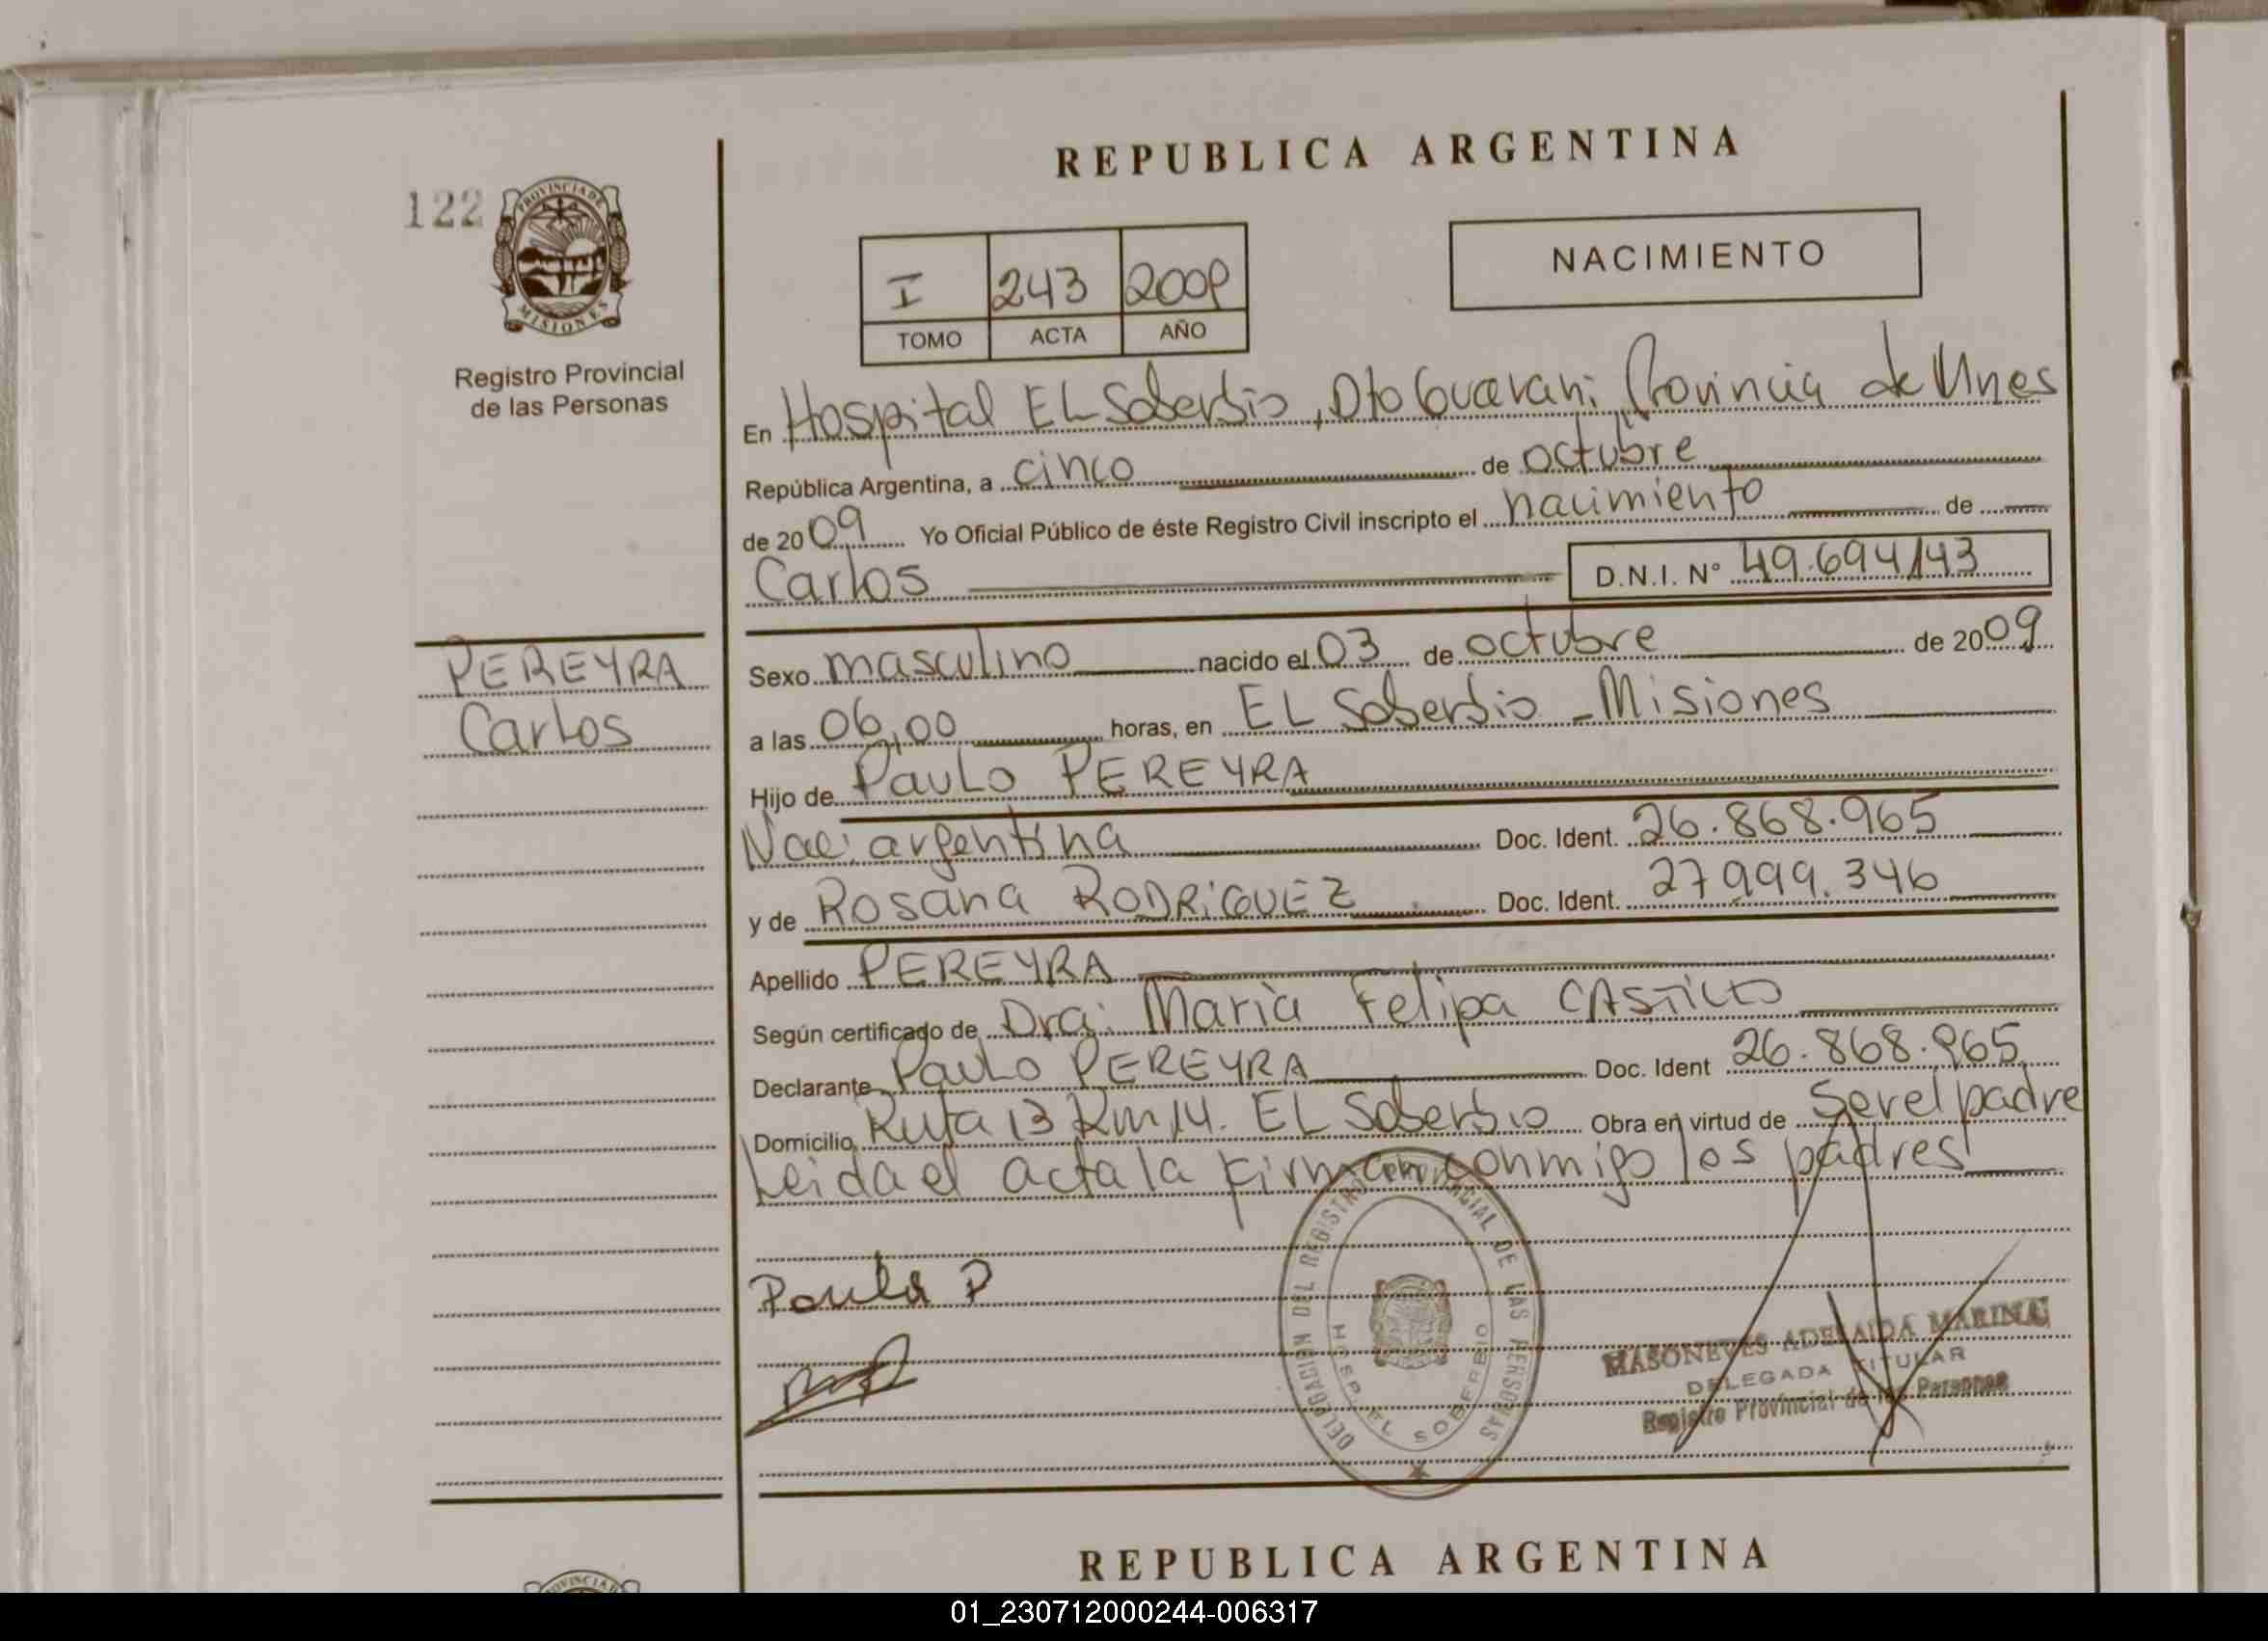 REPUBLICA ARGENTINA
122
PROVINCIA DE
MISIONES
Registro Provincial
de las Personas
I 243 2009
TOMO ACTA AÑO
NACIMIENTO
En Hospital EL Soberbio, Dto Guarani, Provincia de Mnes
República Argentina, a cinco de octubre
de 2009 Yo Oficial Público de éste Registro Civil inscripto el nacimiento de
Carlos D.N.I. Nº 49.694.143
PEREYRA
Carlos
Sexo masculino nacido el 03 de octubre de 2009
a las 06,00 horas, en EL Soberbio - Misiones
Hijo de Paulo PEREYRA
Nac: argentina Doc. Ident. 26.868.965
y de Rosana RODRIGUEZ Doc. Ident. 27.999.346
Apellido PEREYRA
Según certificado de Dra: Maria Felipa CASTILLO
Declarante Paulo PEREYRA Doc. Ident 26.868.965
Domicilio Ruta 13 Km 14. EL Soberbio Obra en virtud de Ser el padre
Leida el acta la firman conmigo los padres
DELEGACION DEL REGISTRO PROVINCIAL DE LAS PERSONAS
HOSP. EL SOBERBIO
MASONEVES ADELAIDA MARINA
DELEGADA TITULAR
Registro Provincial de las Personas
REPUBLICA ARGENTINA
01_230712000244-006317